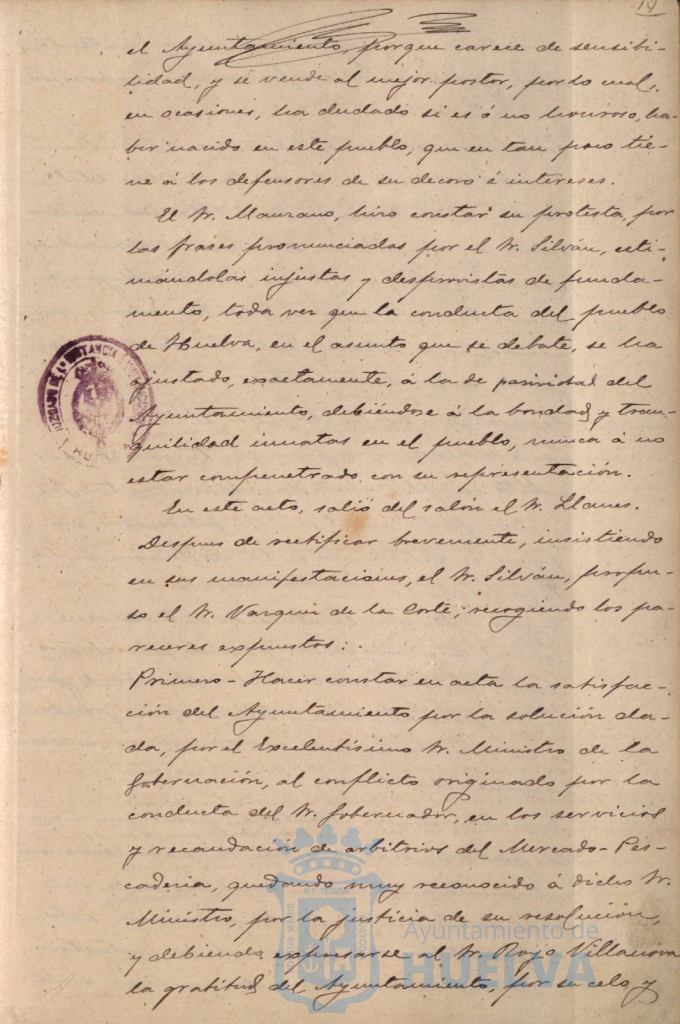 14
el Ayuntamiento, porque carece de sensibi-
lidad, y se vende al mejor postor, por lo cual,
en ocasiones, ha dudado si es ó no honroso, ha-
ber nacido en este pueblo, que en tan poco tie-
ne á los defensores de su decoro é intereses.
El Sr. Manzano, hizo constar su protesta, por
las frases pronunciadas por el Sr. Silván, esti-
mándolas injustas y desprovistas de funda-
mento, toda vez que la conducta del pueblo
de Huelva, en el asunto que se debate, se ha
ajustado, exactamente, á la de pasividad del
Ayuntamiento, debiéndose á la bondad y tran-
quilidad innatas en el pueblo, nunca á no
estar compenetrado con su representación.
En este acto, salió del salón el Sr. Llanes.
Despues de rectificar brevemente, insistiendo
en sus manifestaciones, el Sr. Silván, propu-
so el Sr. Vazquez de la Corte, recogiendo los pa-
receres expuestos:
Primero - Hacer constar en acta la satisfac-
ción del Ayuntamiento por la solución da-
da, por el Excelentísimo Sr. Ministro de la
Gobernación, al conflicto originado por la
conducta del Sr. Gobernador, en los servicios
y recaudación de arbitrios del Mercado-Pes-
caderia, quedando muy reconocido á dicho Sr.
Ministro, por la justicia de su resolución,
y debiendo expresarse al Sr. Rojo Villanova
la gratitud del Ayuntamiento, por su celo, y
Ayuntamiento de
HUELVA